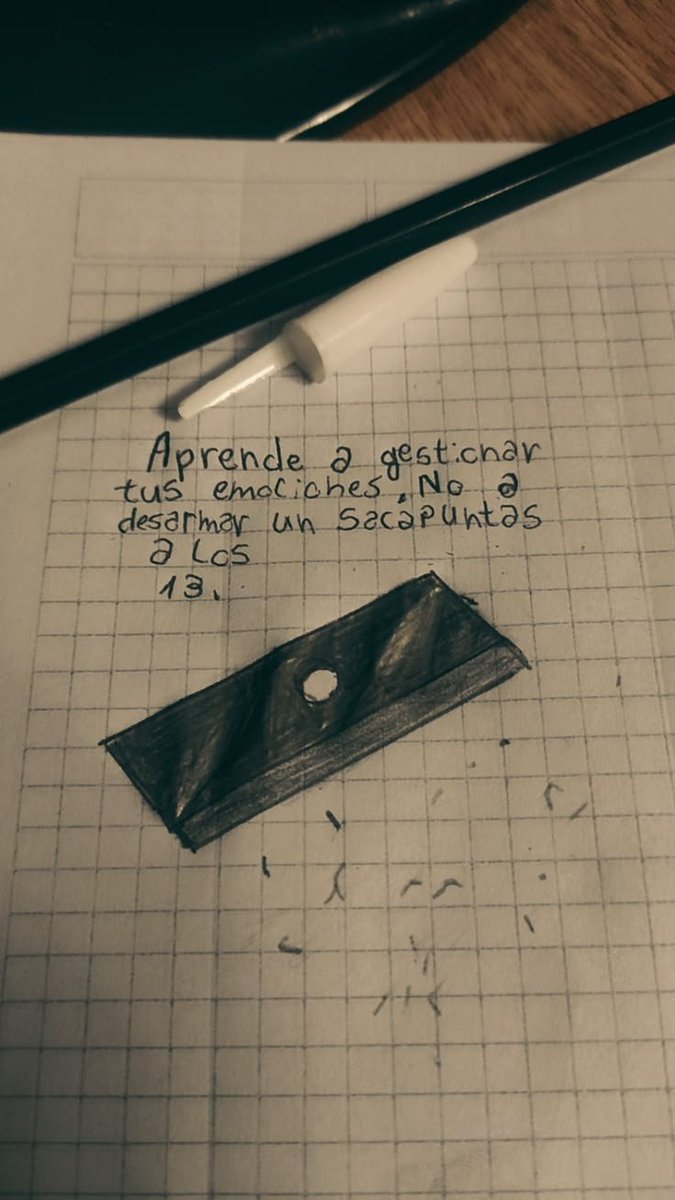 Aprende a gestionar
tus emociones. No a
desarmar un sacapuntas
a los
13.